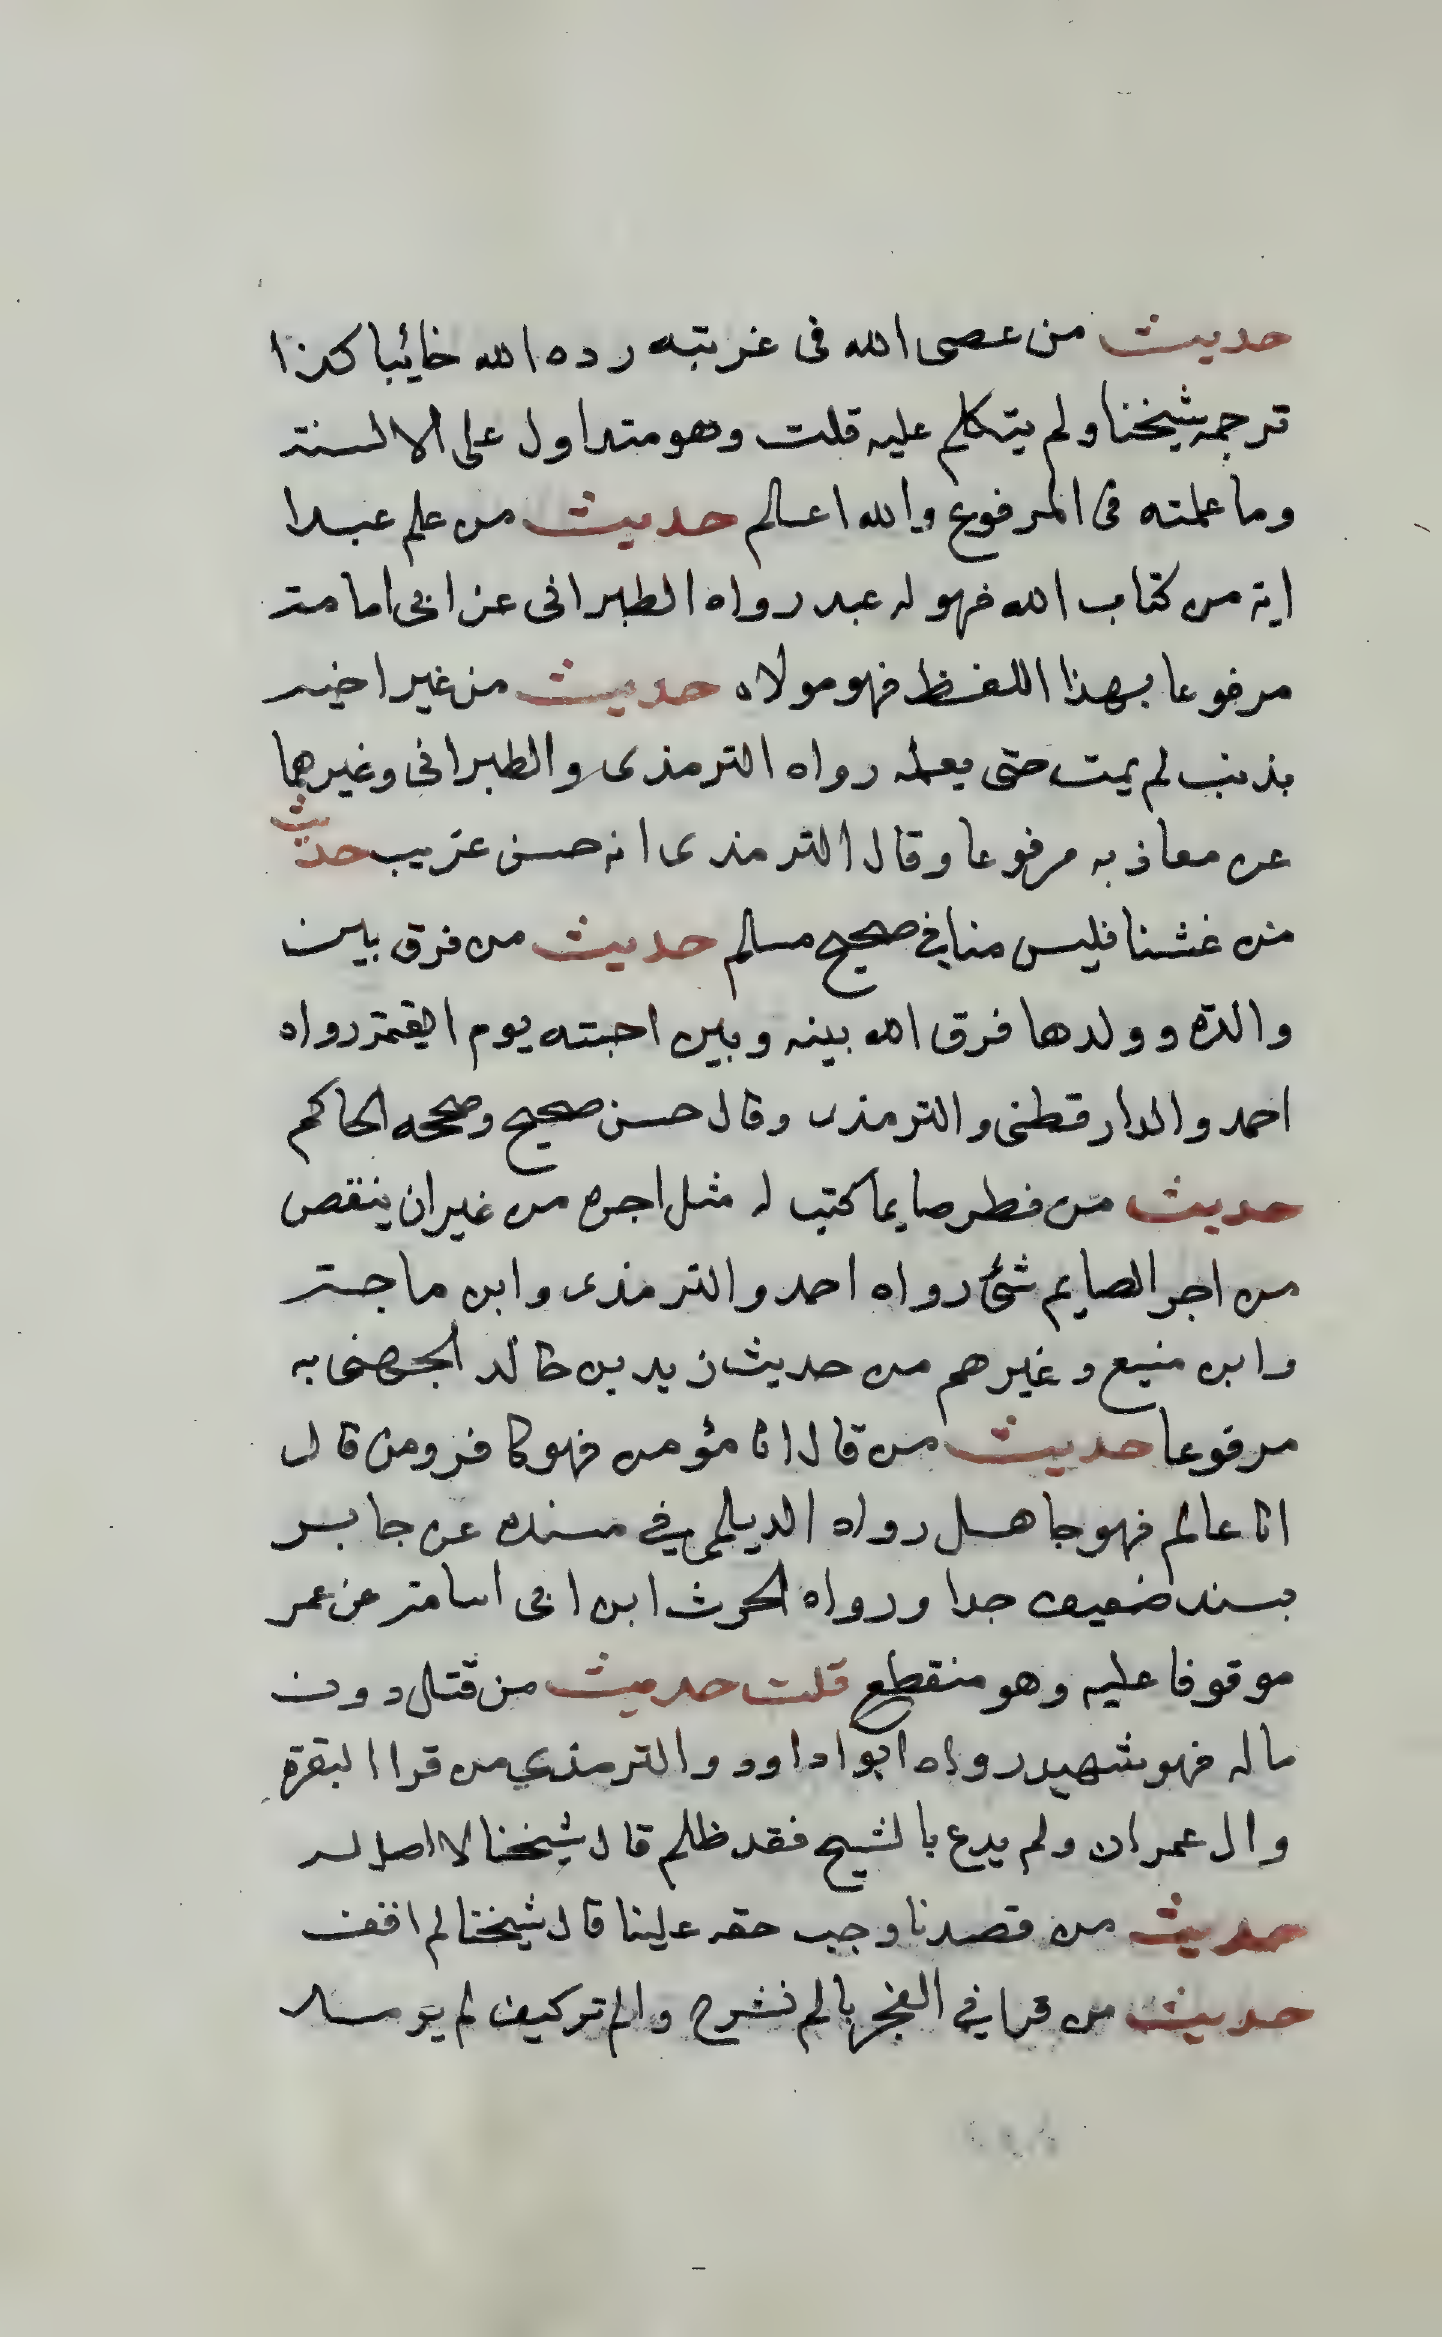 حديث من عصى الله فى غربته رده الله خائبا كذا
ترجمه شيخنا ولم يتكلم عليه قلت وهو متداول على الالسنة
وما علمته فى المرفوع والله اعلم حديث من علم عبدا
اية من كتاب الله فهو له عبد رواه الطبرانى عن ابى امامة
مرفوعا بهذا اللفظ فهو مولاه حديث من غير اخيه
بذنب لم يمت حتى يعمله رواه الترمذى والطبرانى وغيرهما
عن معاذ به مرفوعا وقال الترمذى انه حسن غريب حديث
من غشنا فليس منا فى صحيح مسلم حديث من فرق بين
والدة وولدها فرق الله بينه وبين احبته يوم القيمة رواه
احمد والدارقطنى والترمذى وقال حسن صحيح وصححه الحاكم
حديث من فطر صايما كتب له مثل اجره من غير ان ينقص
من اجر الصايم شئ رواه احمد والترمذى وابن ماجة
وابن منيع وغيرهم من حديث زيد بن خالد الجهنى به
مرفوعا حديث من قال انا مؤمن فهو كافر ومن قال
انا عالم فهو جاهل رواه الديلمى فى مسنده عن جابر
بسند ضعيف جدا ورواه الحرث ابن ابى اسامة عن عمر
موقوفا عليه وهو منقطع قلت حديث من قتل دون
ماله فهو شهيد رواه ابوا داود والترمذي من قرا البقرة
وال عمران ولم يدع بالشيح فقد ظلم قال شيخنا لا اصل له
حديث من قصدنا وجب حقه علينا قال شيخنا لم اقف
حديث من قرا في الفجر بالم نشرح والم تركيف لم يرمد